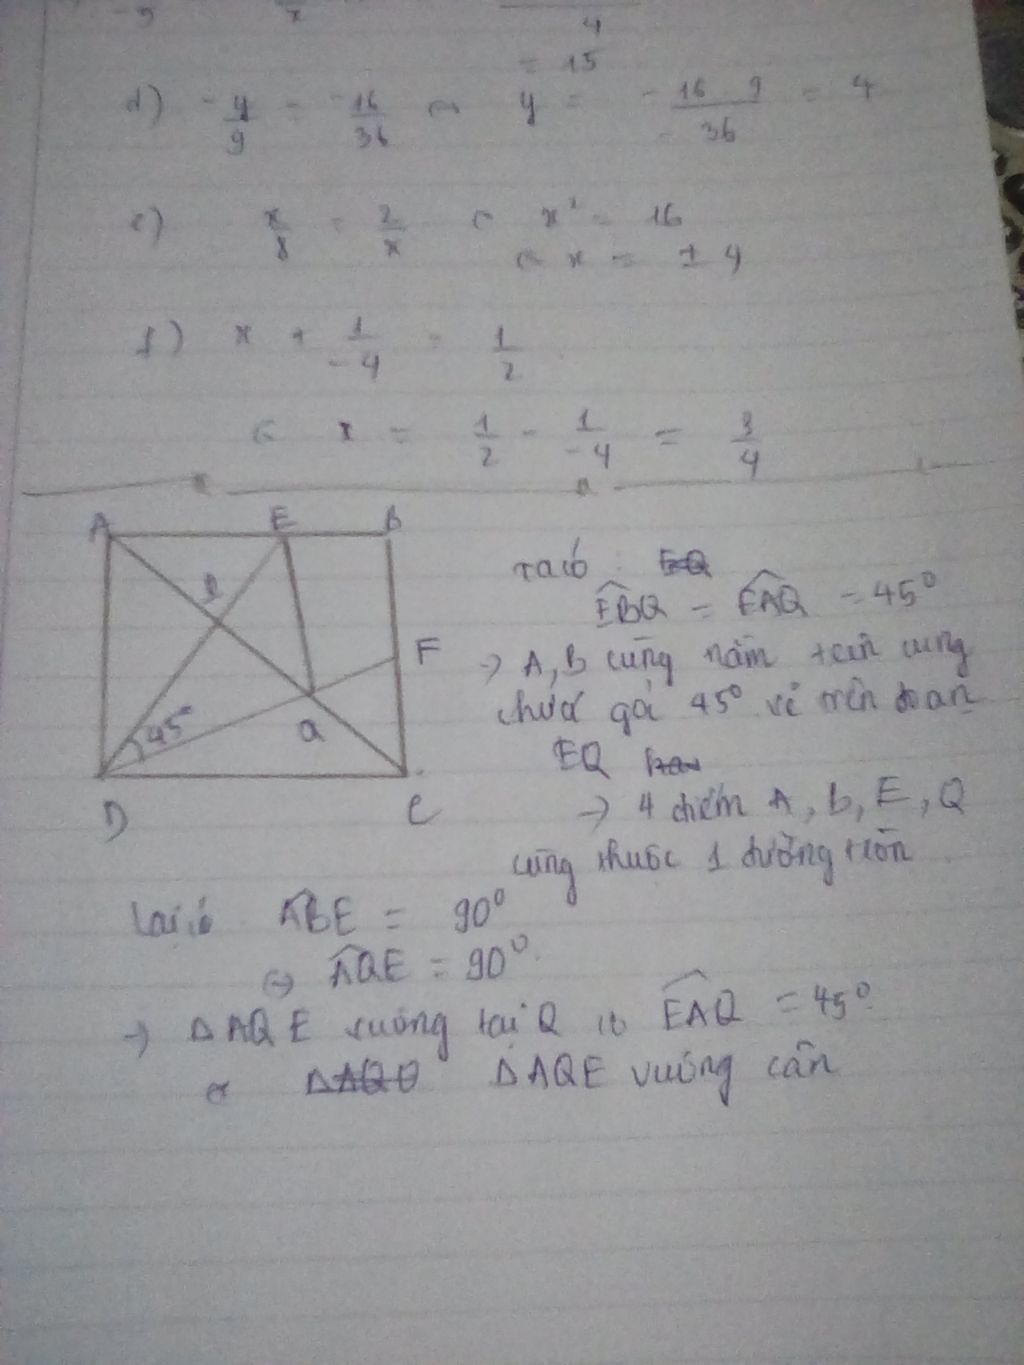 4
= 15
d) -y/9 = -16/36 y = -16 9/36 = 4
e) x/8 = 2/x x² = 16
x = ± 4
f) x + 1/-4 = 1/2
x = 1/2 - 1/-4 = 3/4
A E B
F
45°
Q
D C
Ta có :
EBQ = EAQ = 45°
→ A, B cùng nằm trên cung
chứa gó 45° vẽ trên đoạn
EQ
→ 4 điểm A, b, E, Q
cùng thuộc 1 đường tròn
Lại có ABE = 90°
AQE = 90°
→ ΔAQE vuông tại Q có EAQ = 45°
ΔAQE vuông cân